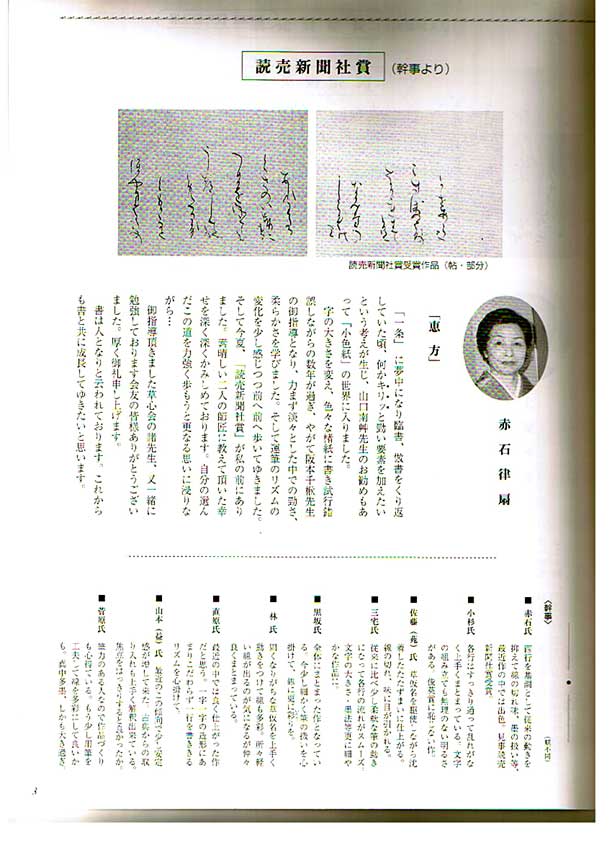 読売新聞社賞
(幹事より)
読売新聞社賞受賞作品(帖・部分)
赤石律扇
「恵方」
「一条」に夢中になり臨書、散書をくり返
していた頃、何かキリッと勁い要素を加えたい
という考えが生じ、山口南艸先生のお勧めもあ
って「小色紙」の世界に入りました。
字の大きさを変え、色々な情紙に書き試行錯
誤しながらの数年が過ぎ、やがて阪本千楸先生
の御指導となり、力まず淡々とした中での勁さ、
柔らかさを学びました。そして運筆のリズムの
変化を少し感じつつ前へ前へ歩いてゆきました。
そして今夏、「読売新聞社賞」が私の前にあり
ました。素晴しい二人の師匠に教えて頂いた幸
せを深く深くかみしめております。自分の選ん
だこの道を力強く歩もうと更なる思いに浸りな
がら…
御指導頂きました草心会の諸先生、又一緒に
勉強しております会友の皆様ありがとうござい
ました。厚く御礼申し上げます。
書は人となりと云われております。これから
も書と共に成長してゆきたいと思います。
〈幹事〉
(順不同)
■赤石氏
抑えて線の切れ味、墨の扱い等、
最近作の中では出色。見事読売
新聞社賞受賞。
■小杉氏 各行はすっきり通って乱れがな
く上手くまとまっている。文字
の組み立ても無理のない明るさ
がある。俊英賞に恥じない作。
■佐藤(苑)氏 草仮名を駆使しながら沈
着したたたずまいに仕上がる。
線の切れ、味に目が引かれる。
■三宅氏 従来に比べ少し柔軟な筆の動き
になって各行の流れがスムーズ。
文字の大きさ、墨法等更に細や
かな作品に。
■黒坂氏 全体にはまとまった作となってい
る。今少し細かく筆の扱いを心
掛けて、線に更に彩りを。
■林氏 固くなりがちな草仮名を上手く
動きをつけて線も多彩。所々軽
い線が出るのが気になるが仲々
良くまとまっている。
■直原氏 最近の中では良く仕上がった作
だと思う。一字一字の造形にあ
まりこだわらず一行を書ききる
リズムを心掛けて。
■山本(益)氏 最近のこの傾向で少し安定
感が増して来た。古典からの取
り入れも上手く解釈出来ている。
焦点をはっきりすると良かったか。
■菅原氏 筆力のある人なので作品づくり
も心得ている。もう少し用筆を
工夫して線を多彩にして良いか
も。真中多墨、しかも大き過ぎ。
3